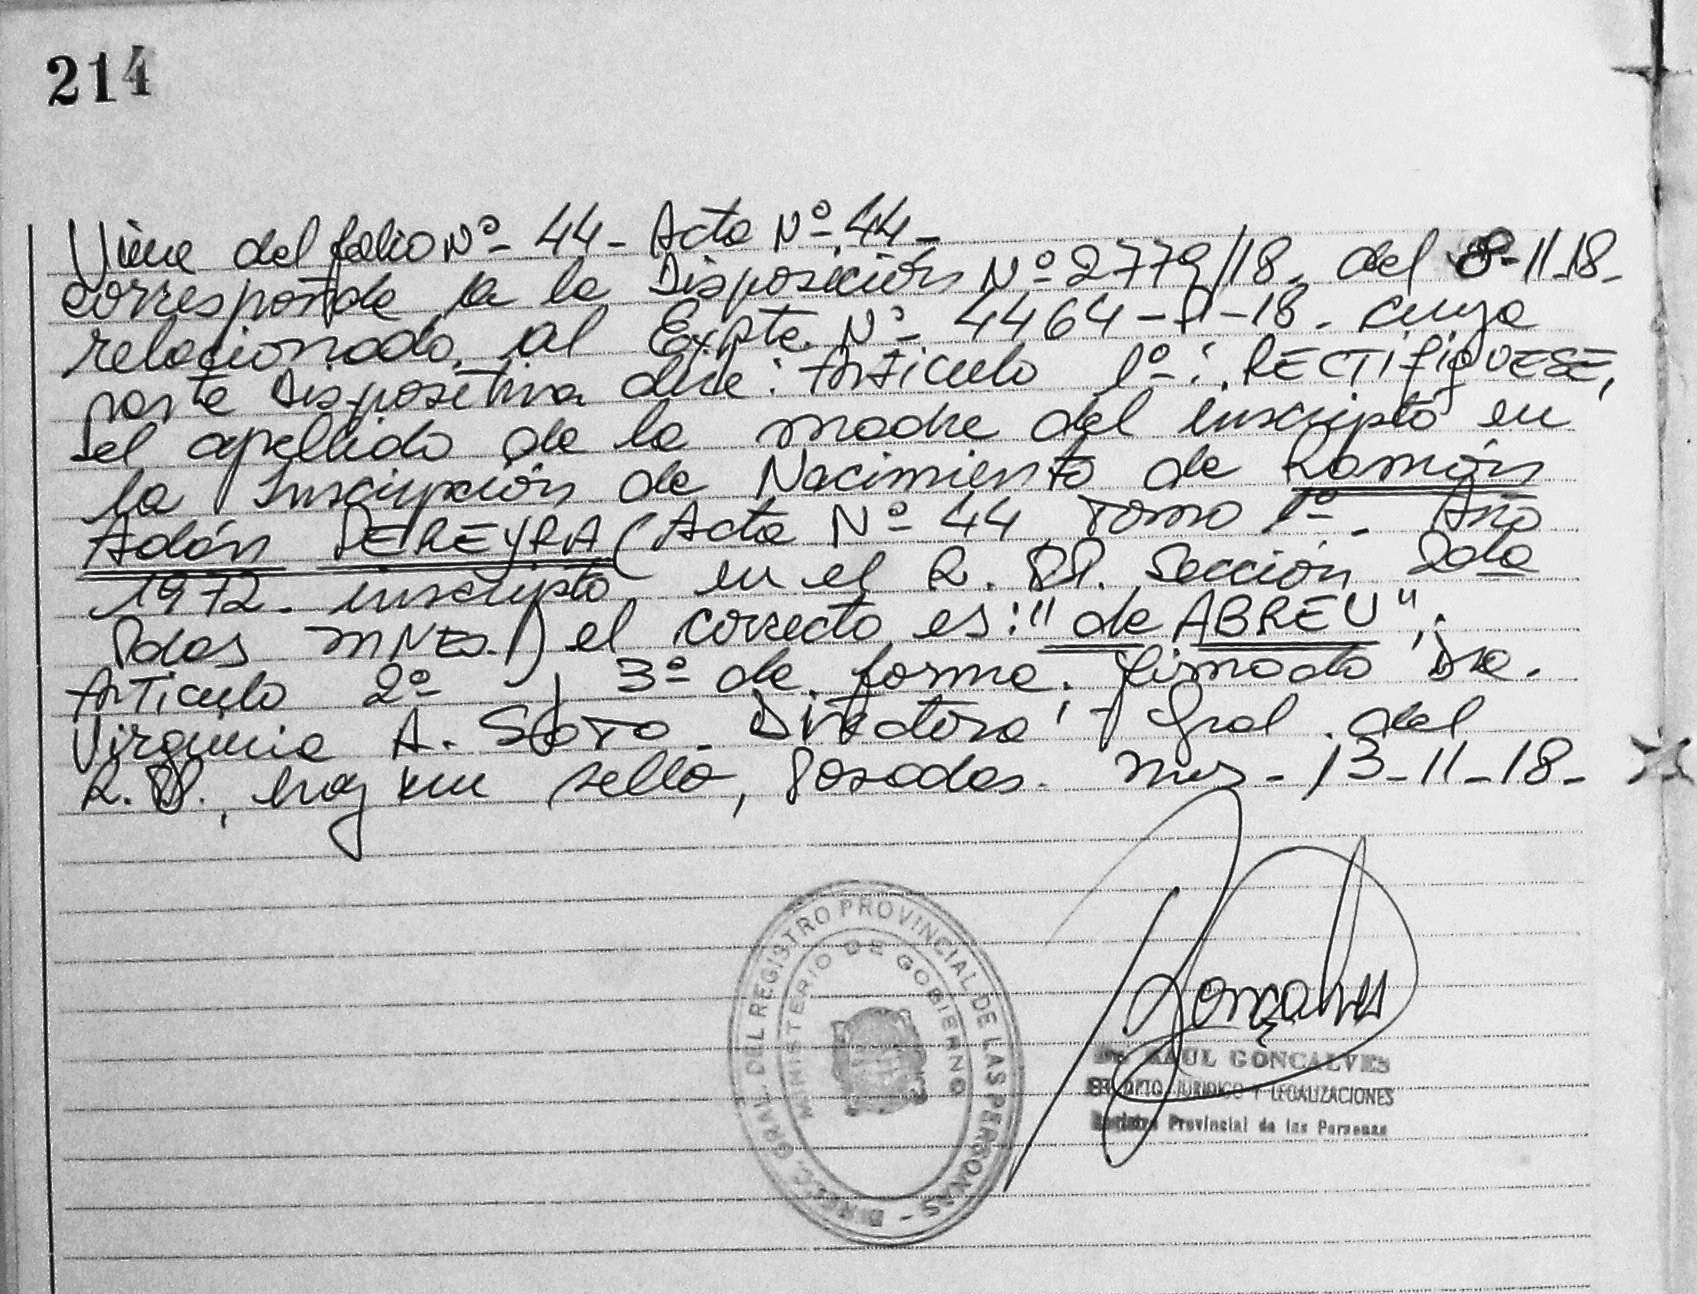 214
Viene del folio Nº- 44- Acta Nº-44-
corresponde a la Disposición Nº 2779/18- del 8-11-18-
relacionado al Expte. Nº- 4464- -18- cuya
parte Dispositiva dice: Artículo 1º-: RECTIFIQUESE,
el apellido de la madre del inscripto en
la Inscripción de Nacimiento de Ramón
Adán PEREYRA (Acta Nº- 44 Tomo 1º-. Año
1972- inscripto en el R. PP. Sección 2da
Pdas MNES.) el correcto es: "de ABREU",
Artículo 2º y 3º de forma. firmado Dra.
Virginia A. Directora Gral. del
R. PP., hay un sello, Posadas. Mns- 13-11-18-
Gonçalves
Dr. RAUL GONCALVES
DPTO. JURIDICO Y LEGALIZACIONES
Registro Provincial de las Personas
DIRECC. GRAL. DEL REGISTRO PROVINCIAL DE LAS PERSONAS -
MINISTERIO DE GOBIERNO